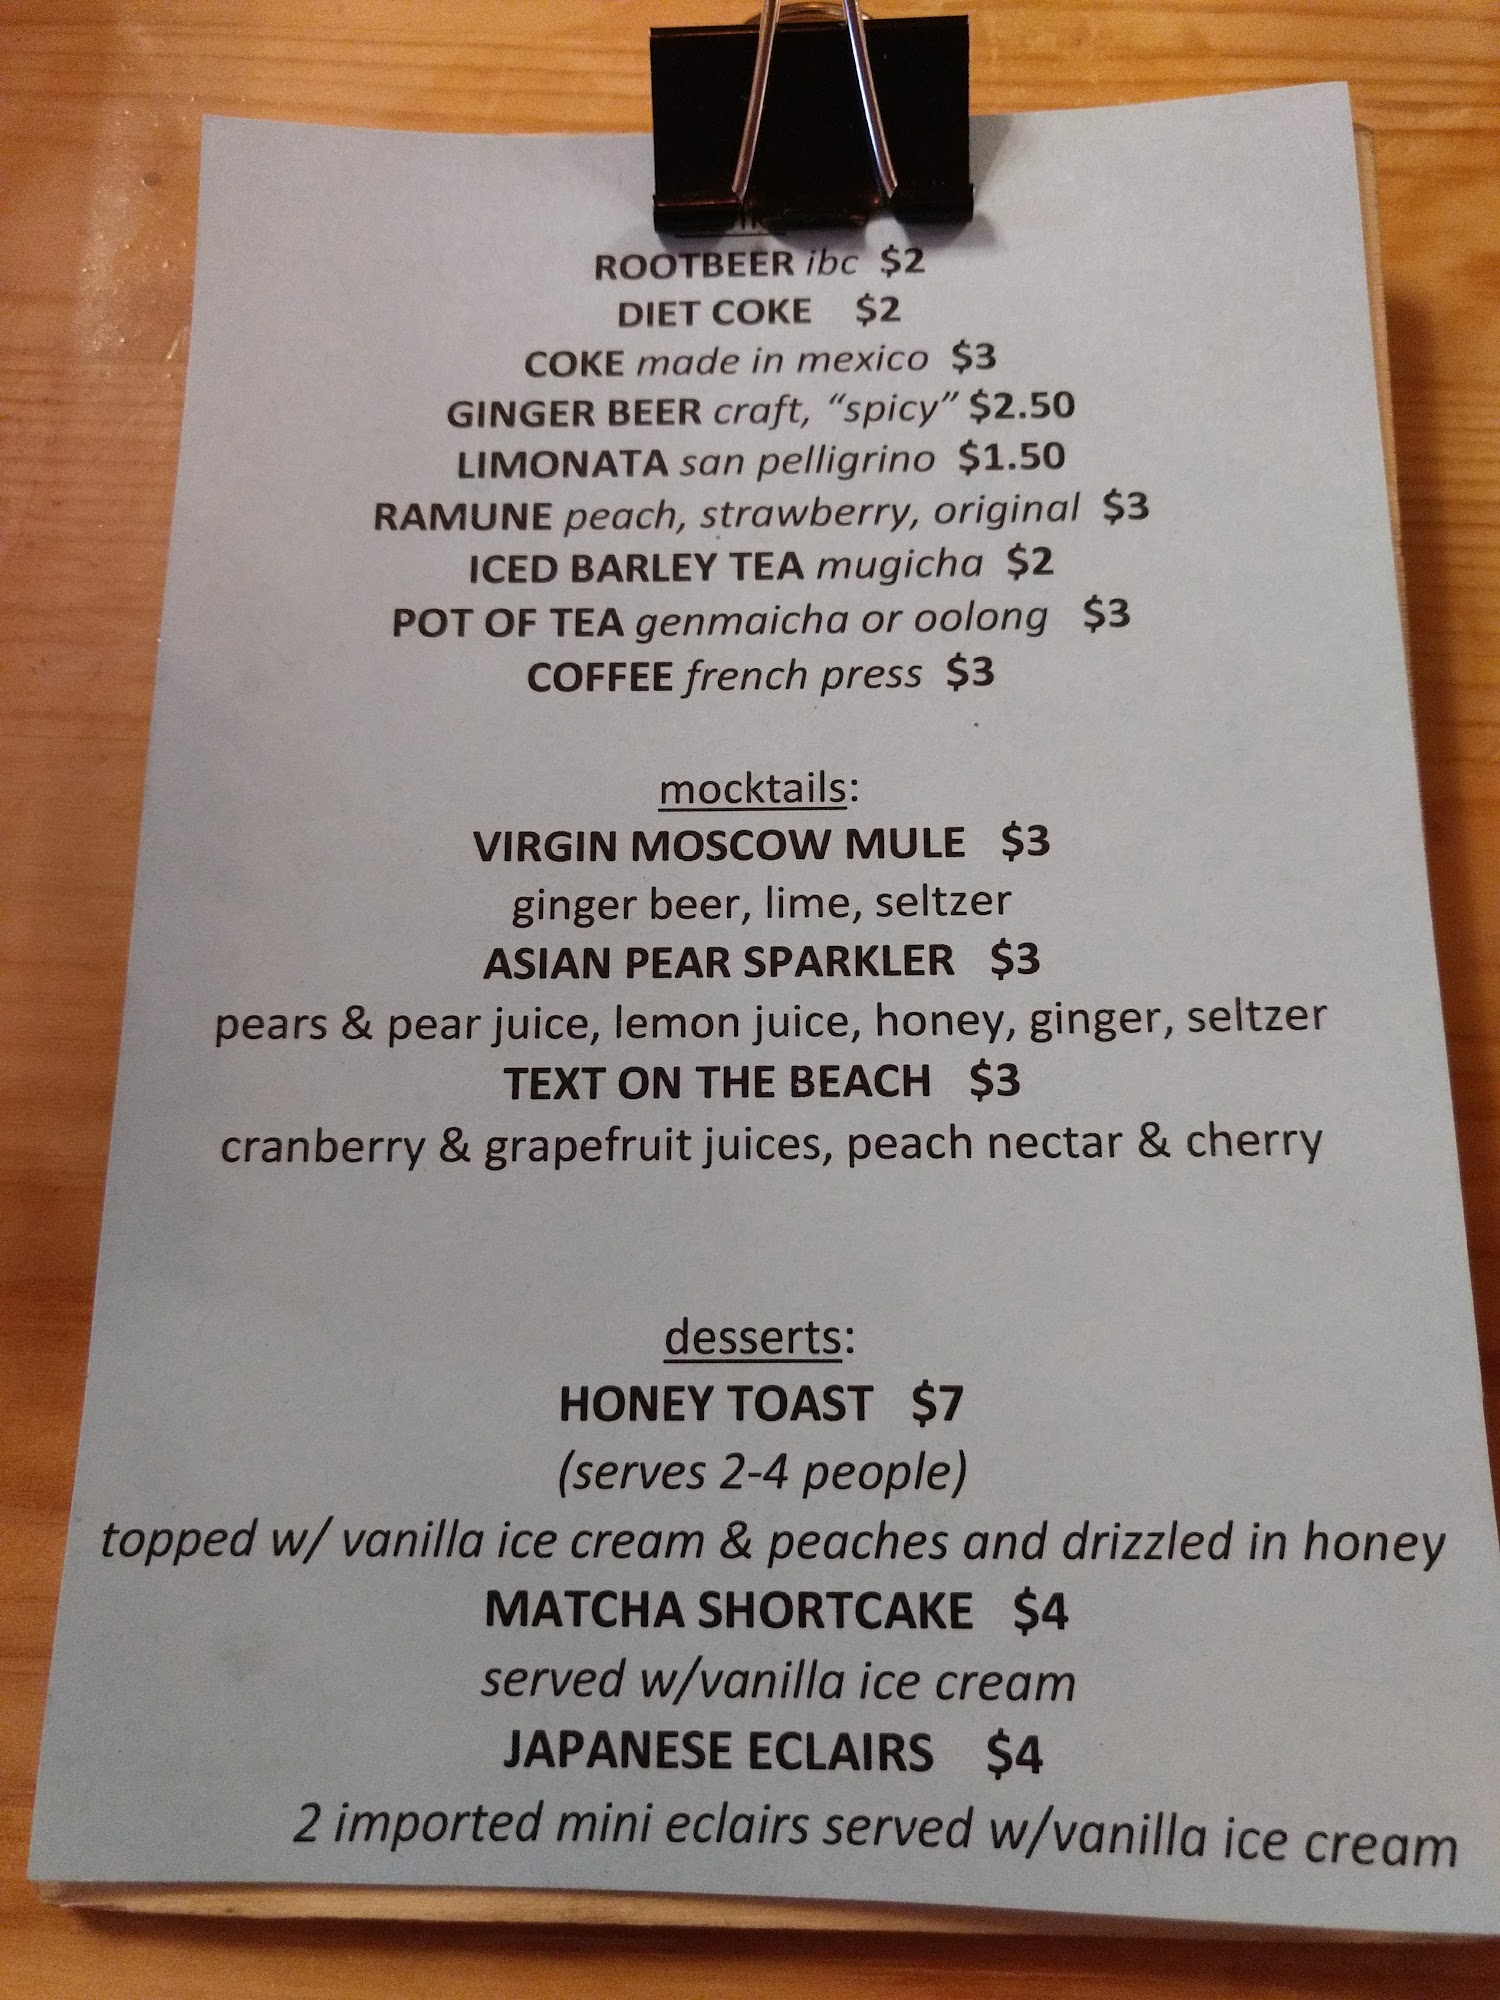 ROOTBEER ibc $2
DIET COKE $2
COKE made in mexico $3
GINGER BEER craft, “spicy” $2.50
LIMONATA san pelligrino $1.50
RAMUNE peach, strawberry, original $3
ICED BARLEY TEA mugicha $2
POT OF TEA genmaicha or oolong $3
COFFEE french press $3
mocktails:
VIRGIN MOSCOW MULE $3
ginger beer, lime, seltzer
ASIAN PEAR SPARKLER $3
pears & pear juice, lemon juice, honey, ginger, seltzer
TEXT ON THE BEACH $3
cranberry & grapefruit juices, peach nectar & cherry
desserts:
HONEY TOAST $7
(serves 2-4 people)
topped w/ vanilla ice cream & peaches and drizzled in honey
MATCHA SHORTCAKE $4
served w/vanilla ice cream
JAPANESE ECLAIRS $4
2 imported mini eclairs served w/vanilla ice cream